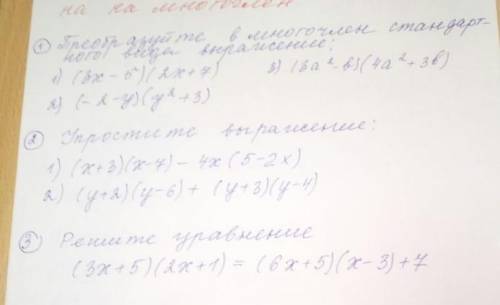 на на многочлен
① Преобразуйте в многочлен стандарт-
ного вида выражение:
1) (3x - 5)(2x+7) 3) (3a² - b)(4a² + 3b)
2) (-2-y)(y²+3)
② Упростите выражение:
1) (x+3)(x-7) - 4x(5-2x)
2) (y+2)(y-6) + (y+3)(y-4)
③ Решите уравнение
(3x+5)(2x+1) = (6x+5)(x-3)+7